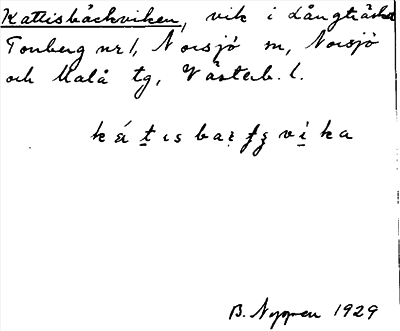 Kattisbäckviken, vik i Långträsket
Tonberg nr 1, Norsjö sn, Norsjö
och Malå tg, Västerb. l.
B. Nygren 1929